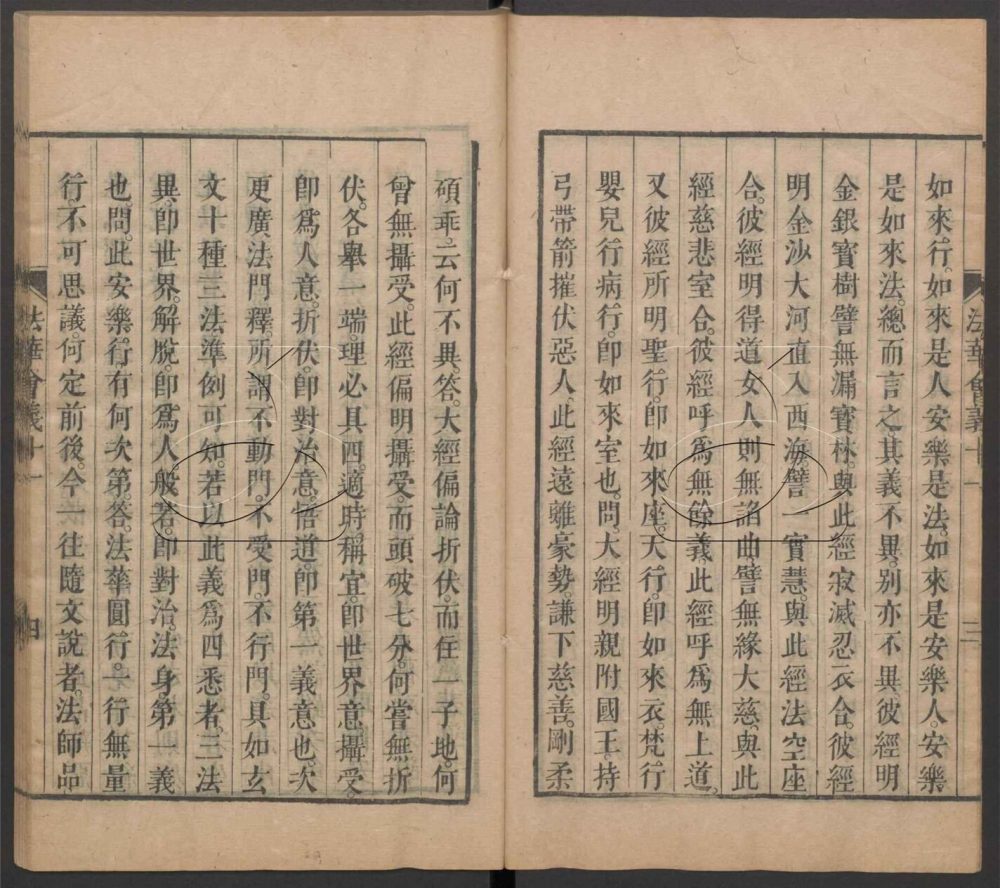 如來行。如來是人安樂是法。如來是安樂人。安樂
是如來法。總而言之。其義不異。別亦不異。彼經明
金銀寳樹。譬無漏寳林。與此經寂滅忍衣合。彼經
明金沙大河直入西海。譬一實慧。與此經法空座
合。彼經明得道女人則無諂曲。譬無緣大慈。與此
經慈悲室合。彼經呼爲無餘義。此經呼爲無上道。
又彼經所明聖行。卽如來座。天行。卽如來衣。梵行
嬰兒行病行。卽如來室也。問。大經明親附國王。持
弓帶箭。摧伏惡人。此經遠離豪勢。謙下慈善。剛柔
法華會義十一
三
碩乖。云何不異。答。大經偏論折伏。而住一子地。何
曾無攝受。此經偏明攝受。而頭破七分。何嘗無折
伏。各舉一端。理必具四。適時稱宜。卽世界意。攝受。
卽爲人意。折伏。卽對治意。悟道。卽第一義意也。次
更廣法門釋。所謂不動門。不受門。不行門。具如玄
文十種三法準例可知。若以此義爲四悉者。三法
異。卽世界。解脫。卽爲人。般若。卽對治。法身。第一義
也。問。此安樂行。有何次第。答。法華圓行。一行無量
行。不可思議。何定前後。今一往隨文說者。法師品
法華會義十一
四